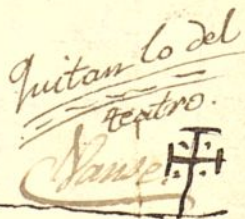 Quitan lo del
teatro.
Vanse.